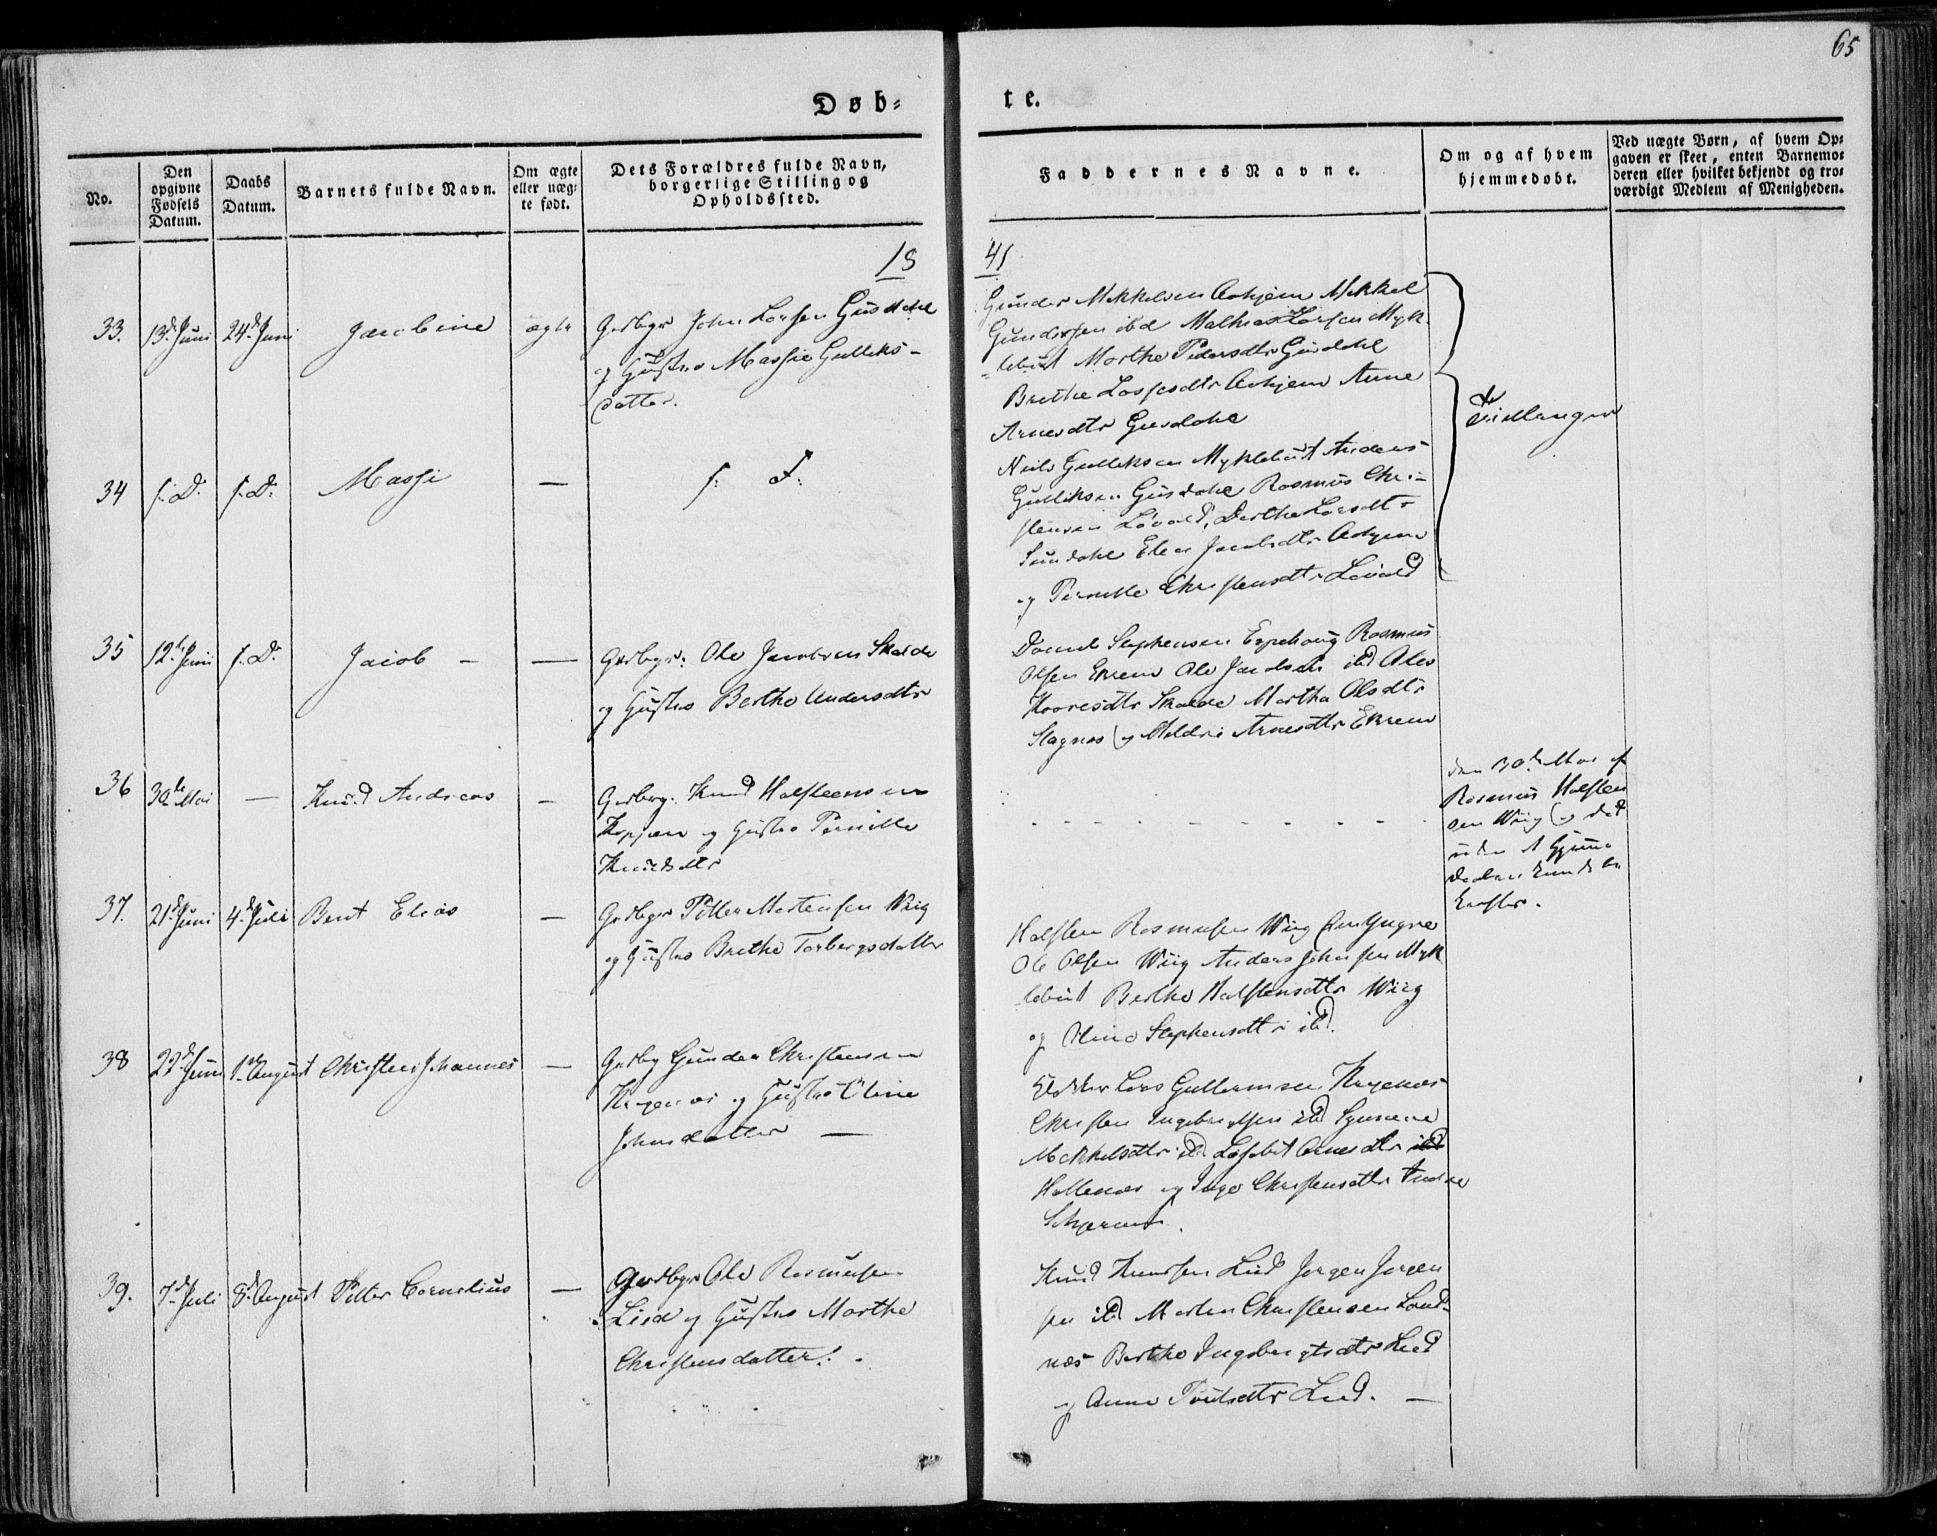 65
Døb-
te.
No.
Den opgivne Fødsels Datum.
Daabs Datum.
Barnets fulde Navn.
Om ægte eller uægte født.
Dets Forældres fulde Navn, borgerlige Stilling og Opholdssted.
Faddernes Navne.
Om og af hvem hjemmedøbt.
Ved uægte Børn, af hvem Opgaven er skeet, enten Barnemoderen eller hvilket bekjendt og troværdigt Medlem af Menigheden.
18
41
33. 13d Juni 24d Juni Jacobine ægte Grdbgr John Larsen Gusdahl
og Hustro Massie Gulliks-
datter.
Gunder Mikkelsen Aahjem Mikkel
Gundersen ibd Mathias Larsen Myk
lebust Marthe Pedersdtr Gusdahl
Brethe Lassesdtr Aahjem Anne
Arnesdtr Gusdahl
Tvillinger
34 s. D. s. D. Massi — s: F:
Niels Gulliksen Myklebust Anders
Gulliksen Gusdahl Rasmus Chri-
stensen Løvold, Berthe Larsdtr
Sundahl Elen Jacobsdtr Aahjem
og Pernille Christensdtr Løvold
35 12te Juni s. D. Jacob — — Grdbgr: Ole Jacobsen Skaade
og Hustro Berthe Andersdtr
Daniel Stephensen Espehaug Rasmus
Olsen Ekrem Ole Jacobsen ibd Ales
Kaaresdtr Skaade Martha Olsdtr
Slagnæs og Meldri Arnesdtr Ekrem
36 30te Mai — Knud Andreas — Grdbrg. Knud Halsteensen
Koppen og Hustro Pernille
Knudsdtr
- - - - - - - - -
den 30te Mai af
Rasmus Halsten
sen Wiig og det
37. 21d Juni 4d Juli Bent Elias — Grdbgr Petter Mortensen Wiig
og Hustro Brethe Torbergsdatter
Halsten Rasmusen Wiig
Ole Olsen Wiig Anders Johnsen Myk
lebust Berthe Halstensdtr Wiig
og Oline Stephensdtr ibd.
38 22d Juni 1ste August Christen Johannes — Grdbg Gunder Christensen
og Hustro Oline
Johnsdatter —
Lars Guttormsen
Christen Ingebrigtsen ibd Synneve
Mikkelsdtr ibd Lisabet Arnesdtr ibd
og Inge Christensdtr Indre
39. 7d Juli 8d August Petter Cornelius — Grdbgr Ole Rasmusen
Liid og Hustro Marthe
Christensdatter.
Knud Knudsen Liid Jørgen Jørgen
sen ibd Morten Christensen Land-
næs Berthe Ingebrigtsdtr Liid
og Anne Poulsdtr Liid. —